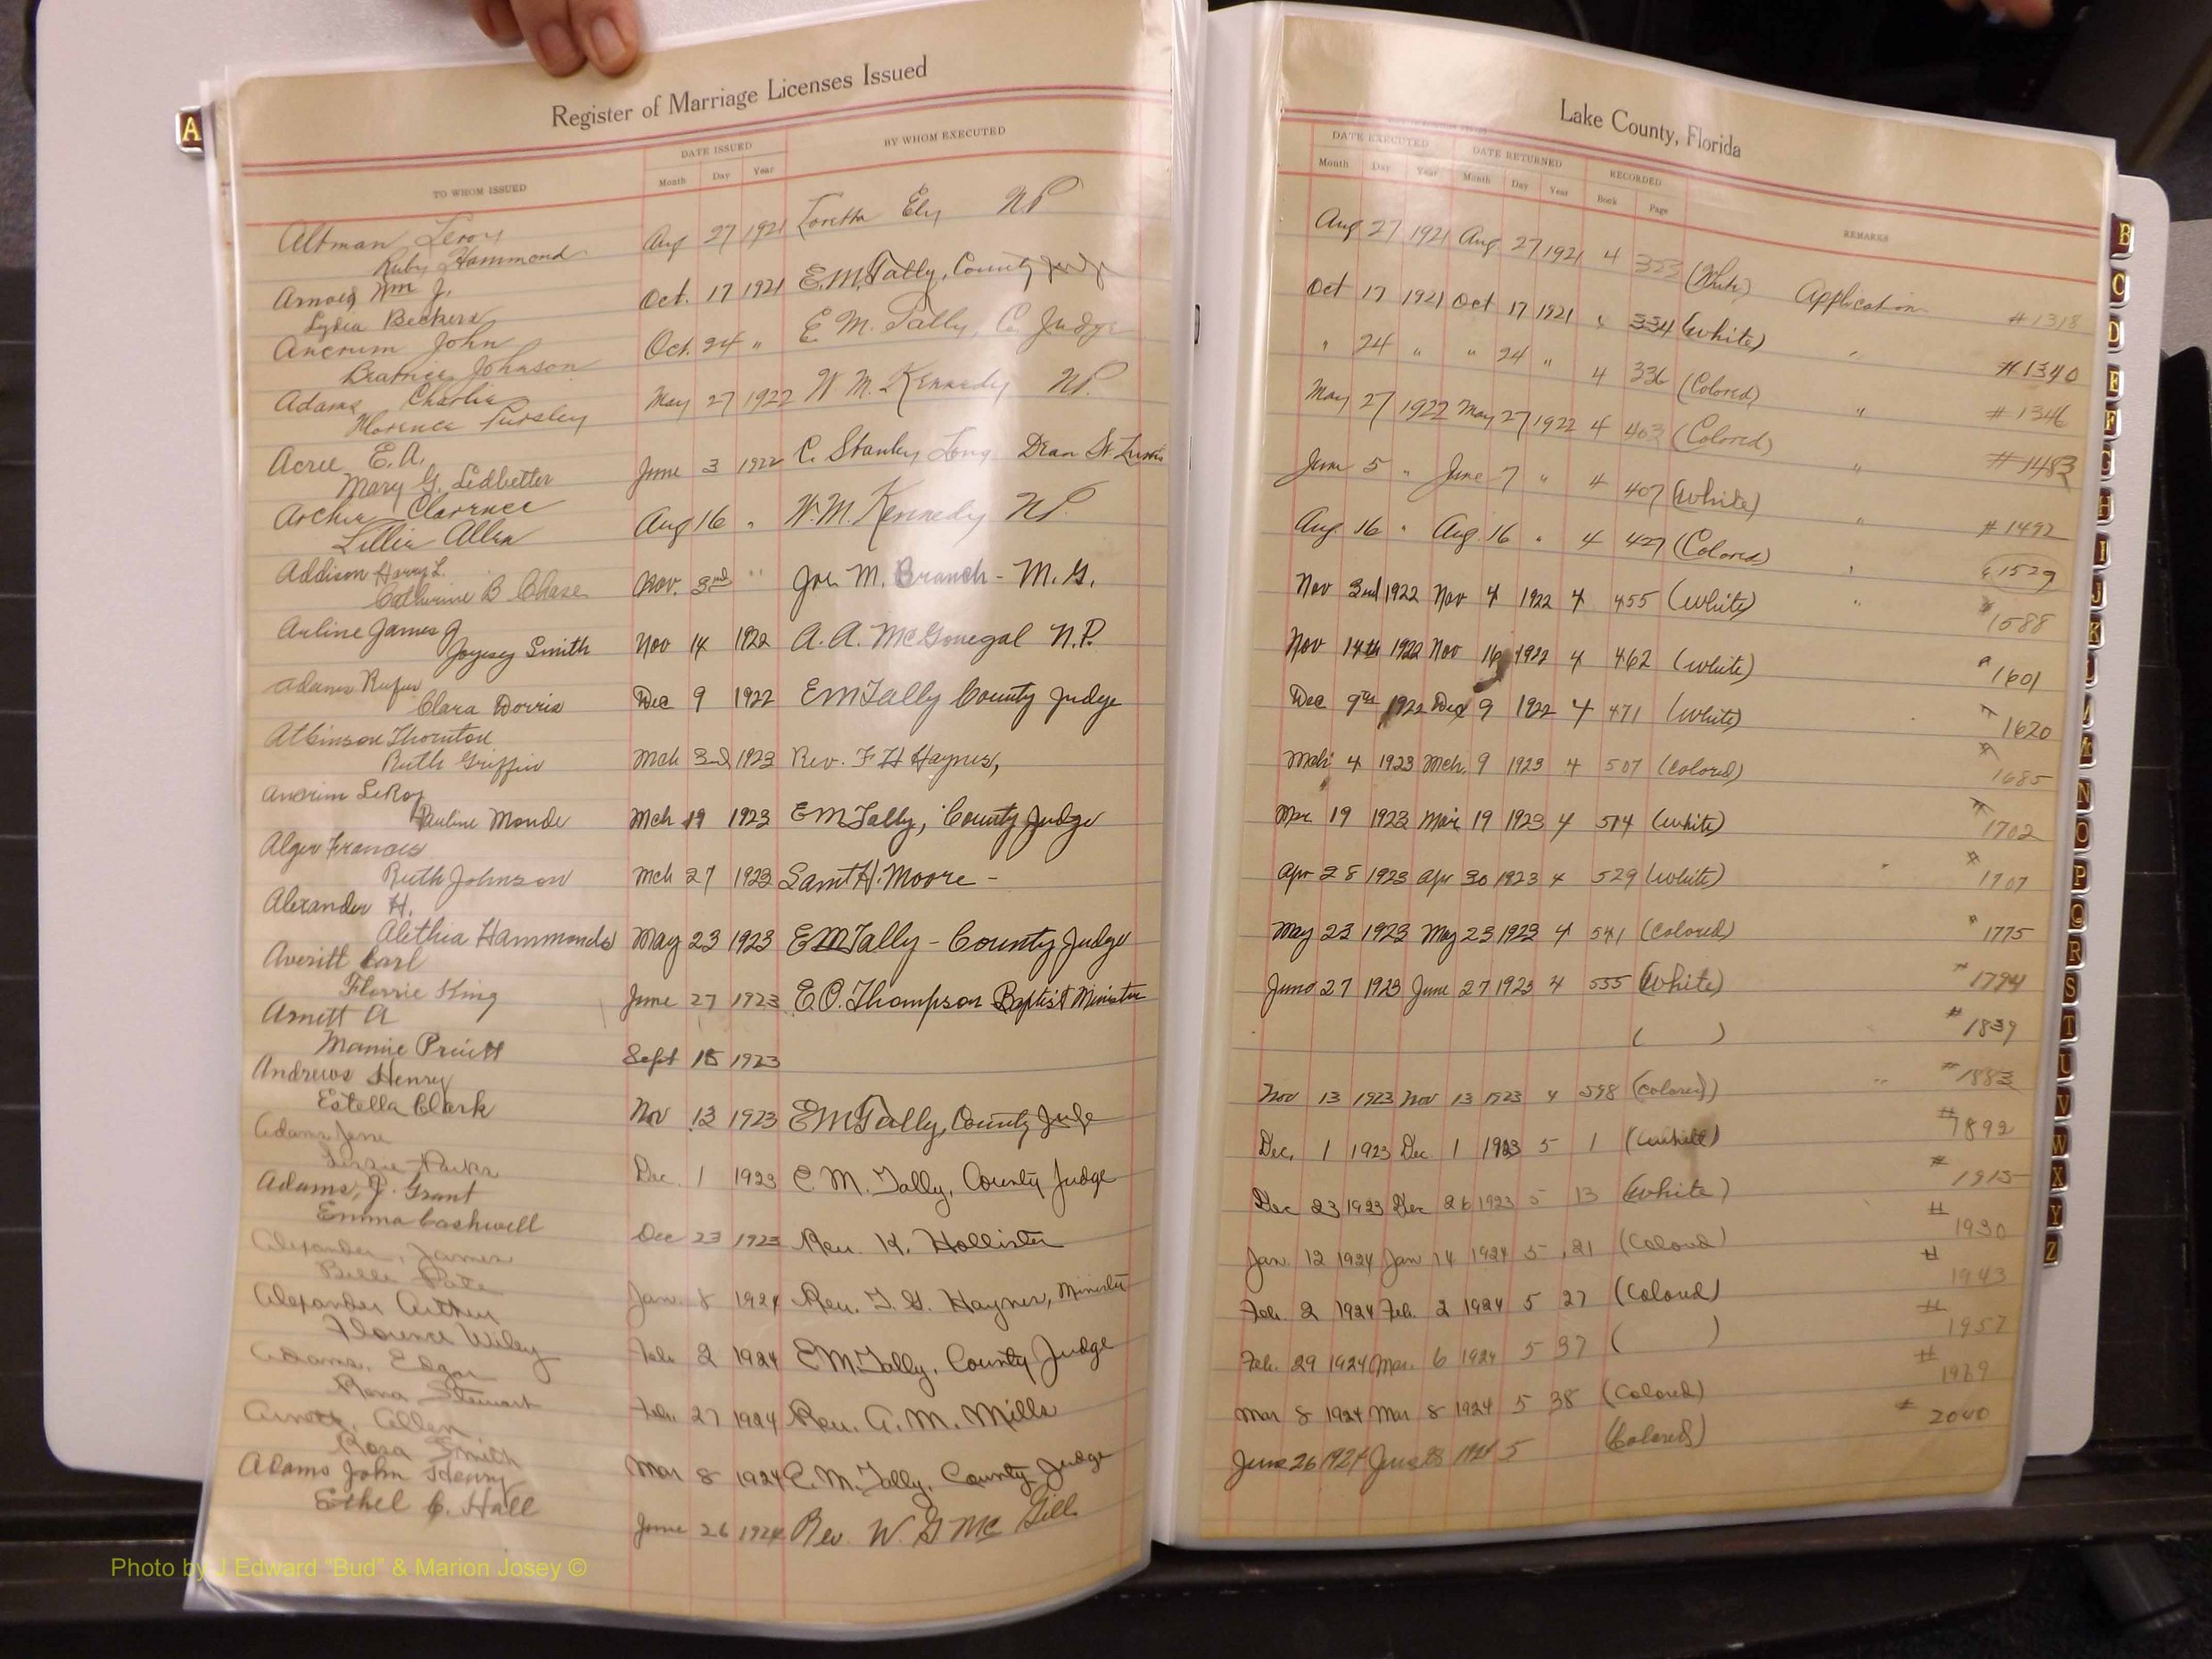 Register of Marriage Licenses Issued
TO WHOM ISSUED DATE ISSUED BY WHOM EXECUTED
Month Day Year
Altman Leroy
Ruby Hammond Aug 27 1921 Loretta Ely NP
Arnold Wm J.
Lydia Beckers Oct. 17 1921 E.M. Tally, County Judge
Ancrum John
Beatrice Johnson Oct. 24 " E M. Tally, Co. Judge
Adams Charlie
Florence Pursley May 27 1922 W M. Kennedy NP.
Acree E.A.
Mary G. Ledbetter June 3 1922 C. Stanley Long Dean St. Lukes
Archie Clarence
Lillie Allen Aug 16 " W.M. Kennedy NP.
Addison Harry L.
Catherine B Chase Nov. 3rd " Joe. M. Branch - M.G.
Arline James J
Joyesey Smith Nov 14 1922 A. A. McGonegal N.P.
Adams Rufus
Clara Dorris Dec 9 1922 EM Tally County Judge
Atkinson Thornton
Ruth Griffin Mch 3rd 1923 Rev. F H Haynes,
LeRoy
Pauline Monde Mch 19 1923 EM Tally, County Judge
Alger Francis
Ruth Johnson Mch 27 1923 Saml H. Moore -
Alexander H.
Alethia Hammonds May 23 1923 EM Tally - County Judge
Averitt Earl
Florrie King June 27 1923 E.O. Thompson Baptist Minister
Arnett A
Mamie Pruitt Sept 15 1923
Andrews Henry
Estella Clark Nov 13 1923 EM Tally, County Judge
Adams Jene
Lizzie Parks Dec. 1 1923 E. M. Tally, County Judge
Adams, J. Grant
Emma Cashwell Dec 23 1923 Rev. K. Hollister
Alexander, James
Belle Pate Jan. 8 1924 Rev. Haynes, Minister
Alexander Arthur
Florence Wiley Feb. 2 1924 E M. Tally, County Judge
Adams, Edgar
Rena Stewart Feb. 27 1924 Rev. A. M. Mills
Arnett, Allen
Rosa Smith Mar 8 1924 E. M. Tally, County Judge
Adams John Henry
Ethel C. Hall June 26 1924 Rev W. G Mc Gill
Lake County, Florida
DATE EXECUTED DATE RETURNED RECORDED REMARKS
Month Day Year Month Day Year Book Page
Aug 27 1921 Aug. 27 1921 4 323 (White) Application #1318
Oct 17 1921 Oct 17 1921 4 334 (White) " #1340
" 24 " " 24 " 4 336 (Colored) " #1346
May 27 1922 May 27 1922 4 403 (Colored) " #1483
June 5 " June 7 " 4 407 (White) " #1492
Aug. 16 " Aug. 16 " 4 427 (Colored) " 1529
Nov 3rd 1922 Nov 4 1922 4 455 (White) " #1588
Nov 14th 1922 Nov 16 1922 4 462 (White) # 1601
Dec 9th 1922 Dec 9 1922 4 471 (White) # 1620
Mch 4 1923 Mch. 9 1923 4 507 (Colored) # 1685
Mar 19 1923 Mar 19 1923 4 514 (White) # 1702
Apr 28 1923 Apr 30 1923 4 529 (White) # 1707
May 23 1923 May 23 1923 4 541 (Colored) # 1775
June 27 1923 June 27 1923 4 555 (White) # 1794
( ) # 1839
Nov 13 1923 Nov 13 1923 4 598 (Colored) " # 1883
Dec. 1 1923 Dec. 1 1923 5 1 (White) # 1892
Dec 23 1923 Dec 26 1923 5 13 (White) # 1915
Jan. 12 1924 Jan 14 1924 5 21 (Colored) # 1930
Feb. 2 1924 Feb. 2 1924 5 27 (Colored) # 1943
Feb. 29 1924 Mar. 6 1924 5 37 ( ) # 1957
Mar 8 1924 Mar 8 1924 5 38 (Colored) # 1969
June 26 1924 June 28 1924 5 (Colored) # 2040
A
B
C
D
E
F
G
H
I
J
K
M
N
O
P
Q
R
S
T
U
V
W
X
Y
Z
Photo by J Edward "Bud" & Marion Josey ©